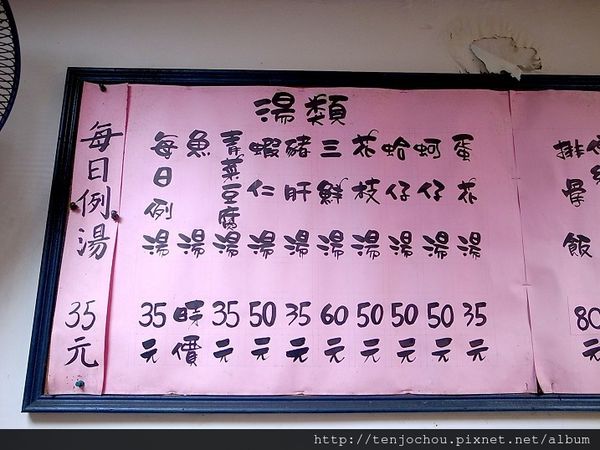 每日例湯 35元
湯類
每日例湯 35元
魚湯 時價
青菜豆腐湯 35元
蝦仁湯 50元
豬肝湯 35元
三鮮湯 60元
花枝湯 50元
蛤仔湯 50元
蚵仔湯 50元
蛋花湯 35元
排骨飯 80元
http://tenjochou.pixnet.net/album